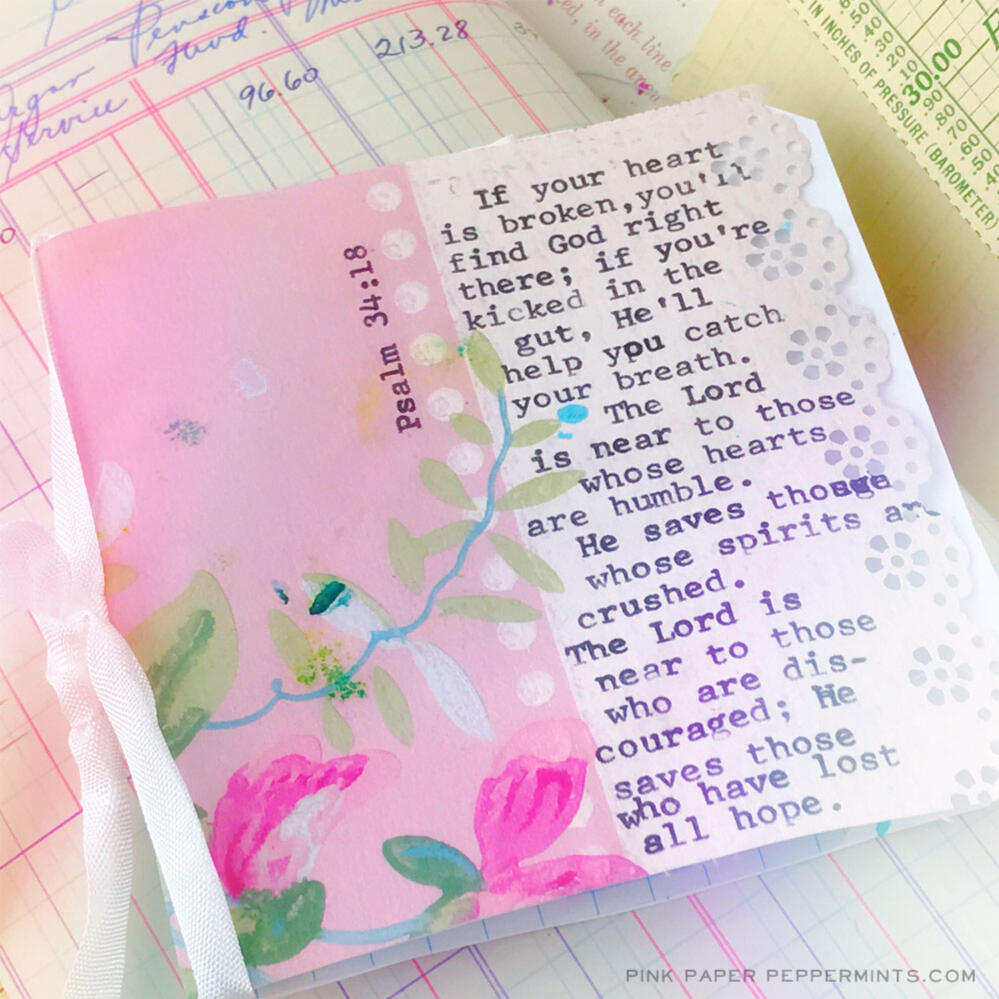 213.28
96.60
Service
30.00
IN INCHES OF PRESSURE (BAROMETER)
Psalm 34:18
If your heart
is broken,you'll
find God right
there; if you're
kicked in the
gut, He'll
help you catch
your breath.
The Lord
is near to those
whose hearts
are humble.
He saves those
whose spirits are
crushed.
The Lord is
near to those
who are dis-
couraged; He
saves those
who have lost
all hope.
PINK PAPER PEPPERMINTS.COM